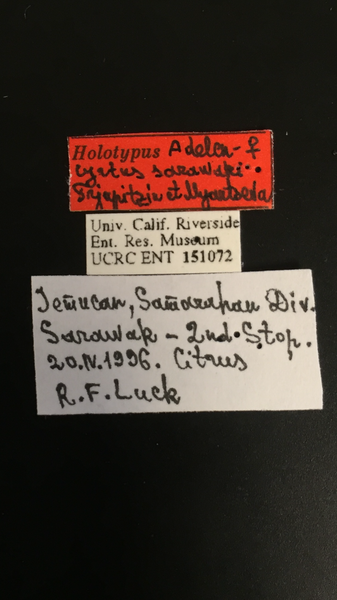 Holotypus Adelen- ♀
cyrtus sarawaki
Trjapitzin et Myartseva
Univ. Calif. Riverside
Ent. Res. Museum
UCRC ENT 151072
Jemucan, Samarahan Div.
Sarawak - 2nd. Stop.
20.IV.1996. Citrus
R.F. Luck